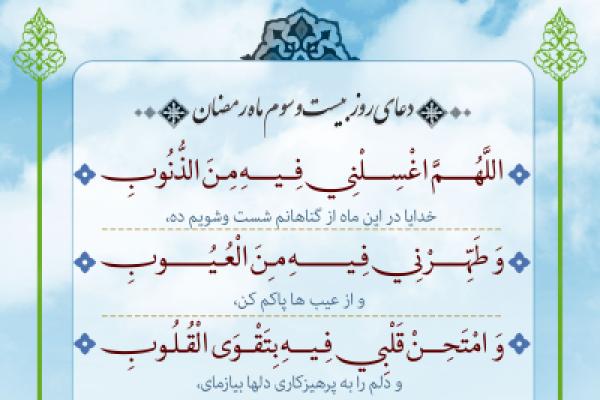 دعای روز بیست و سوم ماه رمضان
اللَّهُمَّ اغْسِلْنِي فِيهِ مِنَ الذُّنُوبِ
خدایا در این ماه از گناهانم شست وشویم ده،
وَ طَهِّرْنِي فِيهِ مِنَ الْعُيُوبِ
و از عیب ها پاکم کن،
وَ امْتَحِنْ قَلْبِي فِيهِ بِتَقْوَى الْقُلُوبِ
و دلم را به پرهیزکاری دلها بیازمای،